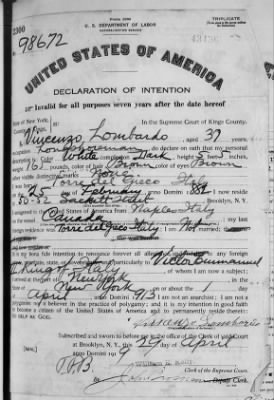 Form 2203
TRIPLICATE
U. S. DEPARTMENT OF LABOR
NATURALIZATION SERVICE
2300
98672
UNITED STATES OF AMERICA
DECLARATION OF INTENTION
Invalid for all purposes seven years after the date hereof
State of New York,
In the Supreme Court of Kings County.
County of Kings,
Vincenzo Lombardo, aged 37 years,
occupation Longshoreman, do declare on oath that my personal
description is: Color White, complexion Dark, height 5 feet 5 inches,
weight 165 pounds, color of hair Brown, color of eyes Brown
other visible distinctive marks None
Torre del Greco Italy
on the 25 day of February, anno Domini 1882; I now reside
at 50-52 Sackett Street, Brooklyn, N. Y.
I emigrated to the United States of America from Naples Italy
on the vessel Canada; my last
foreign residence was Torre del Greco Italy; I am Not married;
It is my bona fide intention to renounce forever all allegiance and fidelity to any foreign
prince, potentate, state, or sovereignty, and particularly to Victor Emmanuel
King of Italy, of whom I am now a subject;
I arrived at the port of New York, in the
State of New York, on or about the 1 day
of April, anno Domini 1913; I am not an anarchist; I am not a
polygamist nor a believer in the practice of polygamy; and it is my intention in good faith
to become a citizen of the United States of America and to permanently reside therein:
SO HELP ME GOD.
Vincenzo Lombardo
Subscribed and sworn to before me in the office of the Clerk of said Court
at Brooklyn, N. Y., this 29 day of April
anno Domini 19
Clerk of the Supreme Court.
Clerk.